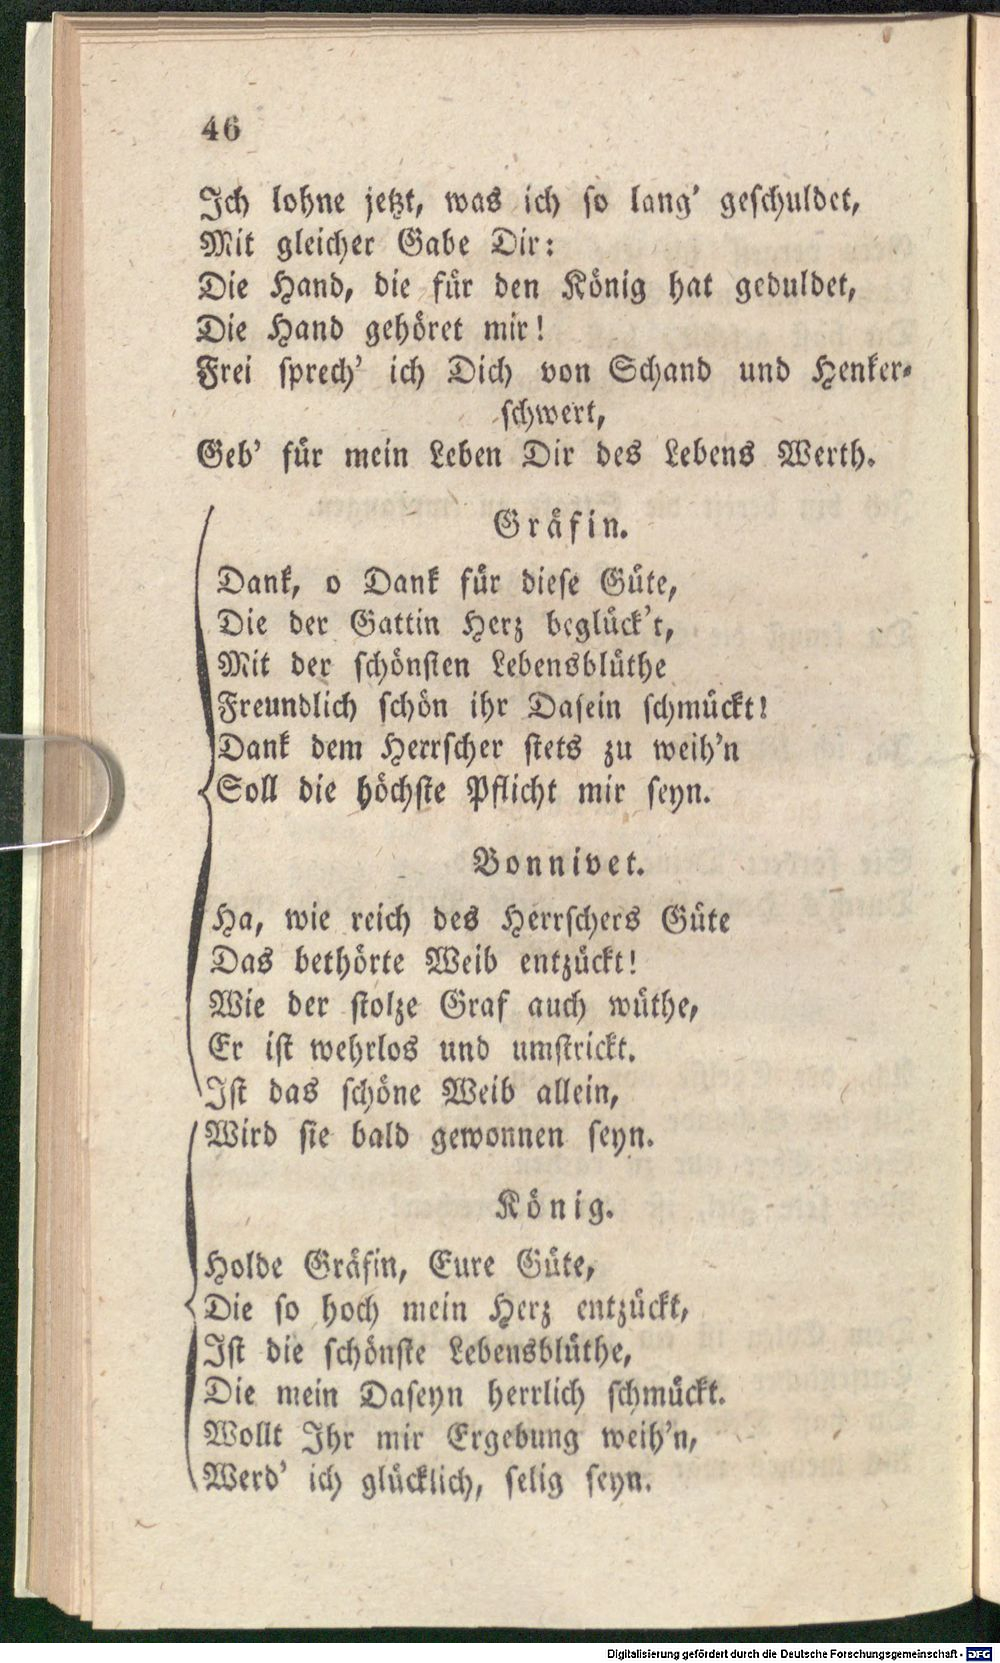 46
Ich lohne jetzt, was ich so lang' geschuldet,
Mit gleicher Gabe Dir:
Die Hand, die für den König hat geduldet,
Die Hand gehöret mir!
Frei sprech' ich Dich von Schand und Henker-
schwert,
Geb' für mein Leben Dir des Lebens Werth.
Gräfin.
Dank, o Dank für diese Güte,
Die der Gattin Herz beglück't,
Mit der schönsten Lebensblüthe
Freundlich schön ihr Dasein schmückt!
Dank dem Herrscher stets zu weih'n
Soll die höchste Pflicht mir seyn.
Bonnivet.
Ha, wie reich des Herrschers Güte
Das bethörte Weib entzückt!
Wie der stolze Graf auch wüthe,
Er ist wehrlos und umstrickt.
Ist das schöne Weib allein,
Wird sie bald gewonnen seyn.
König.
Holde Gräfin, Eure Güte,
Die so hoch mein Herz entzückt,
Ist die schönste Lebensblüthe,
Die mein Daseyn herrlich schmückt.
Wollt Ihr mir Ergebung weih'n,
Werd' ich glücklich, selig seyn.
Digitalisierung gefördert durch die Deutsche Forschungsgemeinschaft - DFG